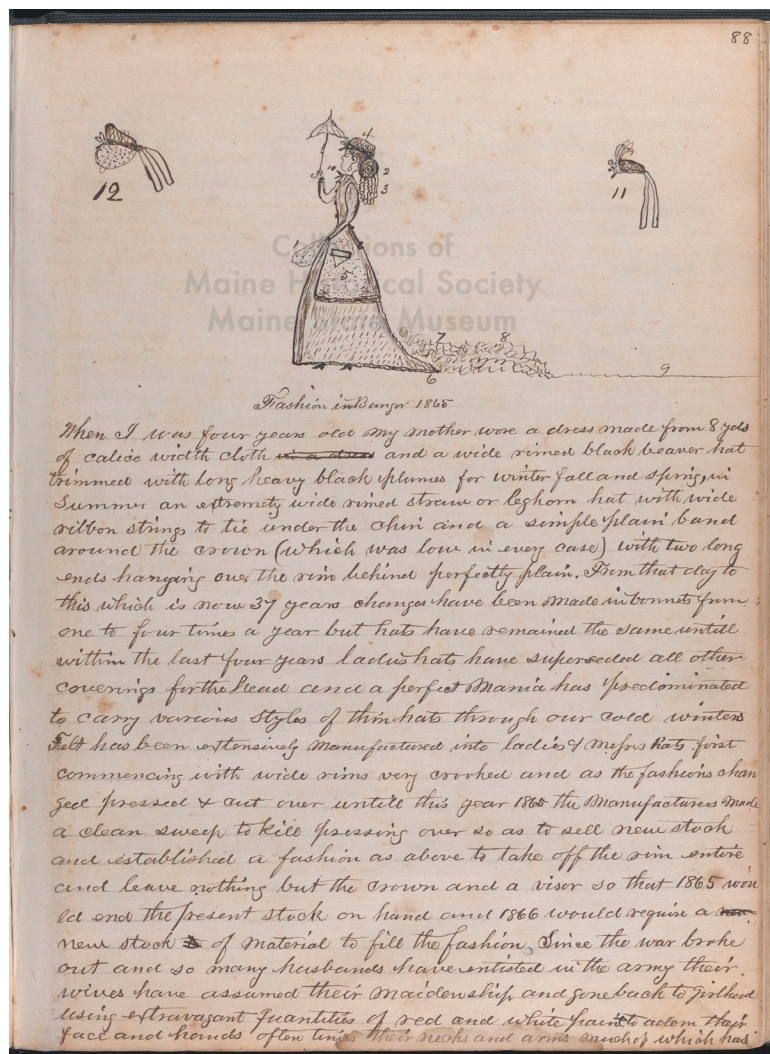 88
12
4
10
2
3
11
1
5
Collections of
Maine Historical Society
Maine State Museum
7
8
9
6
Fashion in Bangor 1865
When I was four years old my mother wore a dress made from 8 yds
of calico width cloth in a dress and a wide rimed black beaver hat
trimmed with long heavy black plumes for winter fall and spring, in
Summer an extremety wide rimed straw or leghorn hat with wide
ribbon strings to tie under the chin and a simple plain band
around the crown (which was low in every case) with two long
ends hanging over the rim behind perfectly plain. From that day to
this which is now 37 years changes have been made in bonnets from
one to four times a year but hats have remained the same untill
within the last four years ladies hats have superseded all other
coverings for the head and a perfect Mania has predominated
to carry various styles of thin hats through our cold winters
Felt has been extensively manufactured into ladies & misses hats first
commencing with wide rims very crooked and as the fashions chan
ged pressed & cut over untill this year 1865 the Manufacturers made
a clean sweep to kill pressing over so as to sell new stock
and established a fashion as above to take off the rim entire
and leave nothing but the crown and a visor so that 1865 wou
ld end the present stock on hand and 1866 would require a new
new stock of material to fill the fashion. Since the war broke
out and so many husbands have entisted in the army their
wives have assumed their maidenship and gone back to girlhood
using extravagant quantities of red and white paint to adorn their
face and hands often times their necks and arms much of which has